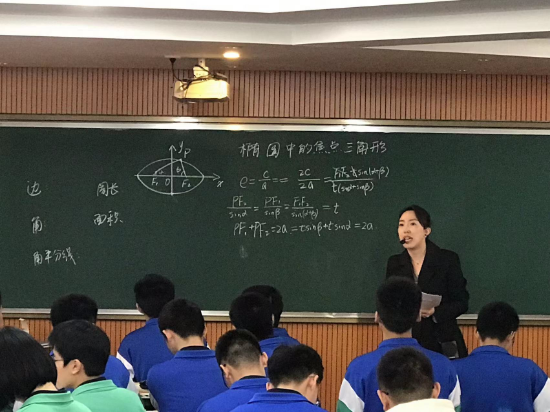 椭圆中的焦点三角形
y
P
F₁ O F₂ x
边 周长
角 面积
角平分线:
e = c/a = 2c/2a = F₁F₂/t(sinα+sinβ)
PF₂/sinα = PF₁/sinβ = F₁F₂/sin(α+β) = t
PF₁+PF₂=2a=tsinβ+tsinα=2a